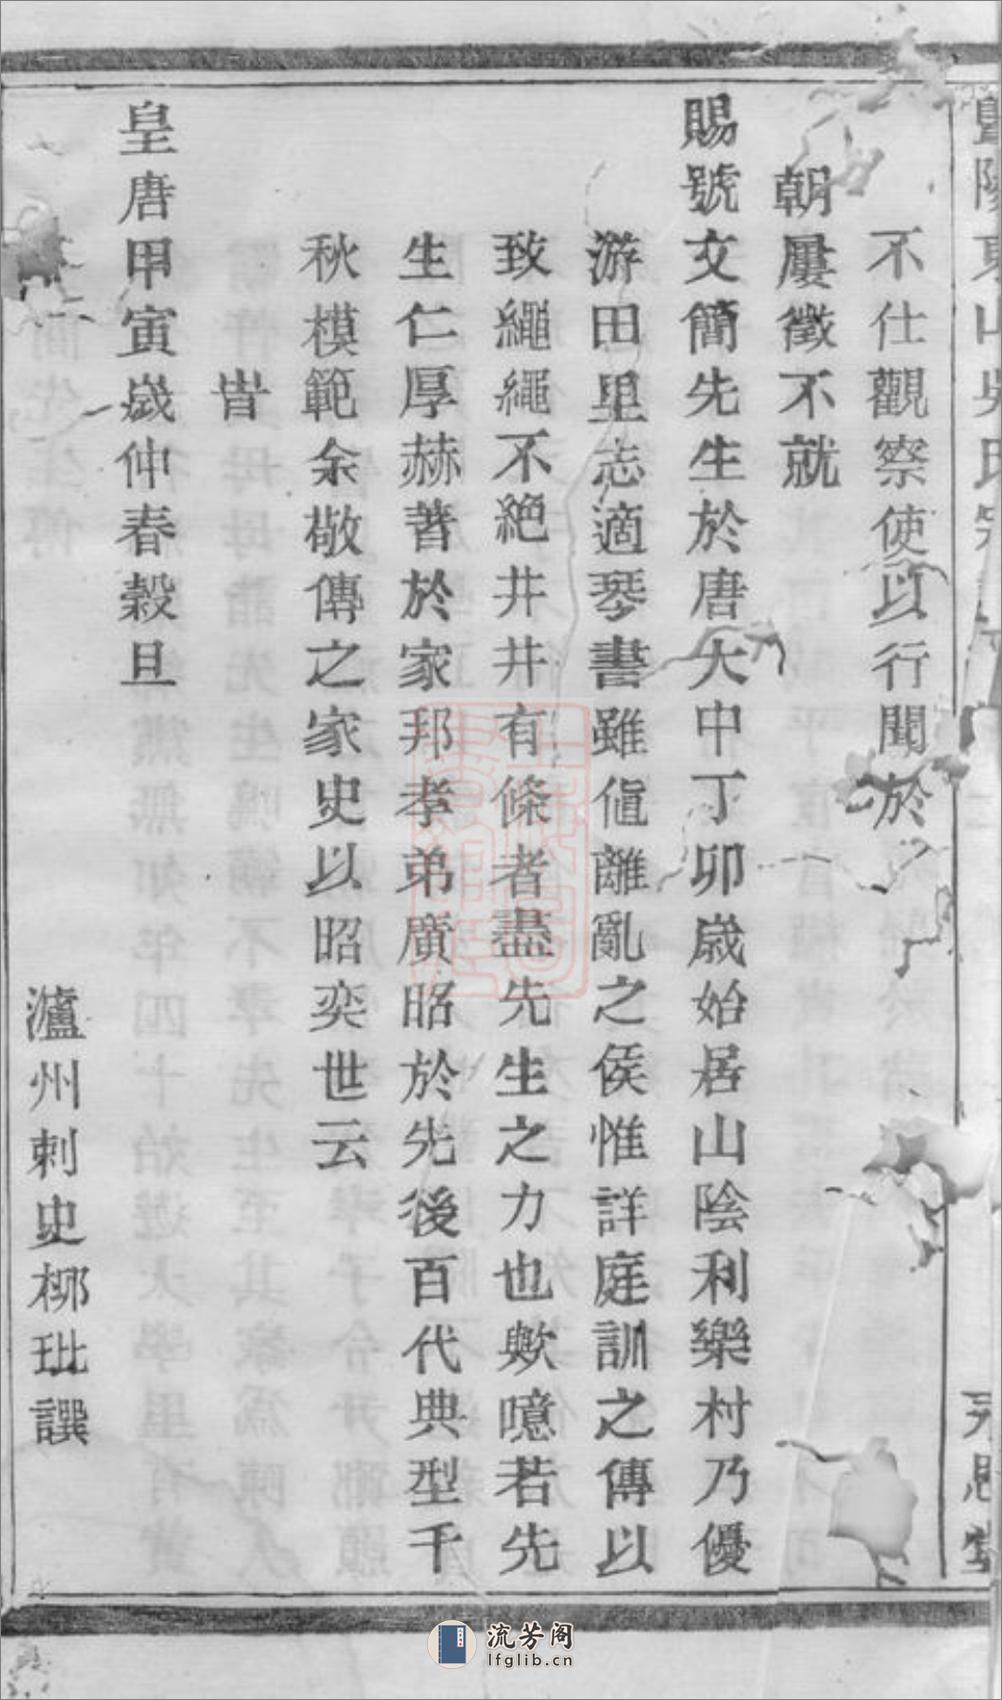 暨陽東山吳氏宗
永思堂
不仕觀察使以行聞於
朝屢徵不就
賜號文簡先生於唐大中丁卯歲始居山陰利樂村乃優
游田里志適琴書雖值離亂之侯惟詳庭訓之傳以
致繩繩不絕井井有條者盡先生之力也歟噫若先
生仁厚赫著於家邦孝弟廣昭於先後百代典型千
秋模範余敬傳之家史以昭奕世云
旹
皇唐甲寅歲仲春穀旦
瀘州刺史柳玭譔
流芳阁
lfglib.cn